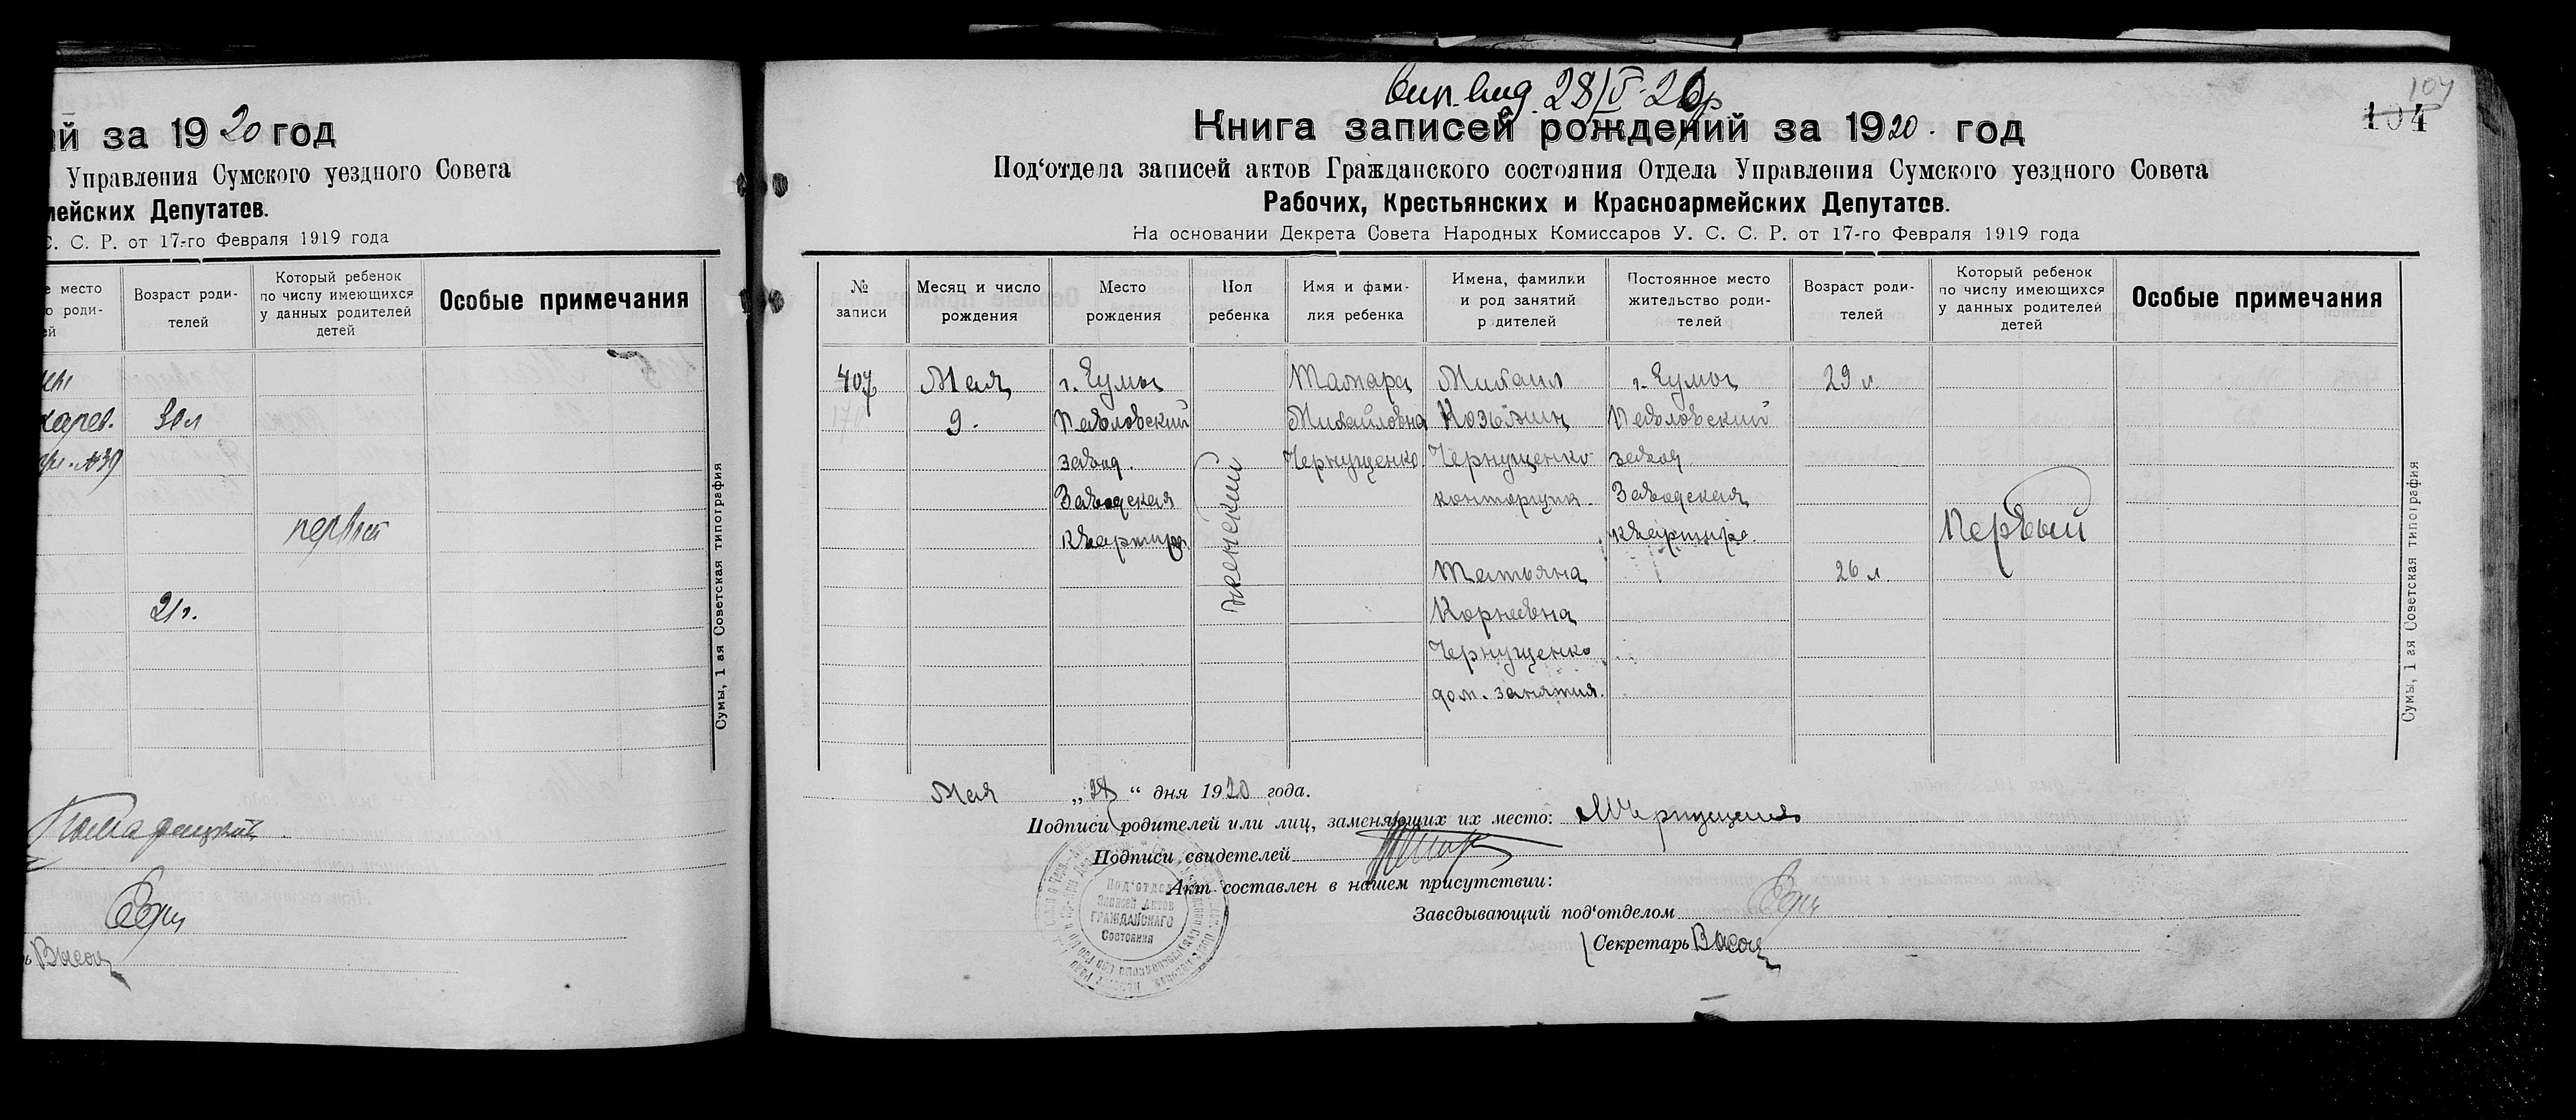 ей за 1920 год
Управления Сумского уездного Совета
мейских Депутатов.
С. С. Р. от 17-го Февраля 1919 года
е место
о роди-
ей
Возраст роди-
телей
Который ребенок
по числу имеющихся
у данных родителей
детей
Особые примечания
30 л
№39
первый
21 г.
Сумы, 1 ая Советская типография
28/V-20 р
104
104
Книга записей рождений за 1920. год
Под'отдела записей актов Гражданского состояния Отдела Управления Сумского уездного Совета
Рабочих, Крестьянских и Красноармейских Депутатов.
На основании Декрета Совета Народных Комиссаров У. С. С. Р. от 17-го Февраля 1919 года
№
записи
Месяц и число
рождения
Место
рождения
Пол
ребенка
Имя и фами-
лия ребенка
Имена, фамилии
и род занятий
р дителей
Постоянное место
жительство роди-
телей
Возраст роди-
телей
Который ребенок
по числу имеющихся
у данных родителей
детей
Особые примечания
407
Мая
9.
г. Сумы
Павловский
завод.
Заводская
квартира.
женский
Тамара
Михайловна
Чернущенко
Михаил
Козьмин
Чернущенко
конторщик.
Татьяна
Корнеевна
Чернущенко
дом. занятия.
г. Сумы
Павловский
завод
Заводская
квартира.
29 л.
26 л.
Первый
Сумы, 1 ая Советская типография
Мая „ “ дня 1920 года.
Подписи родителей или лиц, заменяющих их место: МЧернущенко
Подписи свидетелей
Акт составлен в нашем присутствии:
Заведывающий под'отделом
Секретарь
Под'отдел
Записей Актов
ГРАЖДАНСКАГО
Состояния